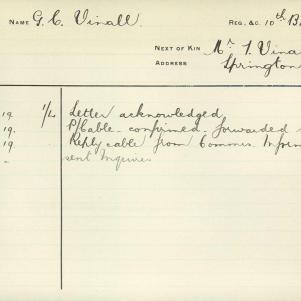 NAME G. C. Vinall. REG. &C. 10th B
NEXT OF KIN Mr. T. Vina
ADDRESS Springton
19 1/2 Letter acknowledged
19. P/Cable confirmed. forwarded
19 Reply cable from Commis. Infrm
sent Inquires